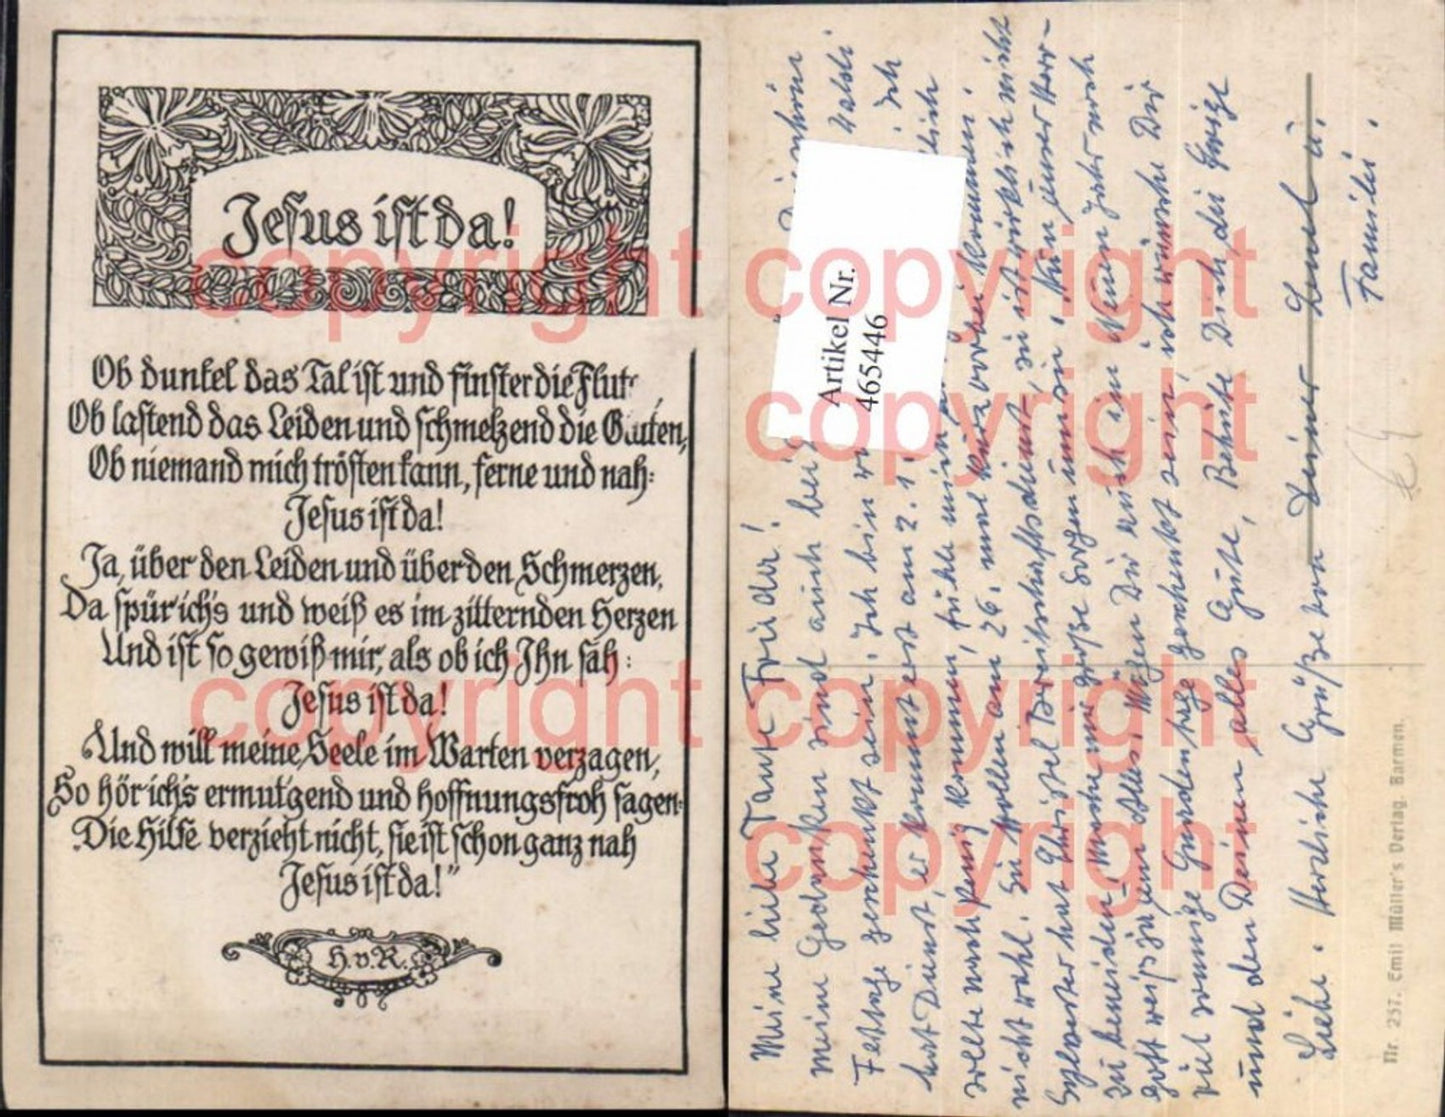 Jesus ist da!
Ob dunkel das Tal ist und finster die Flut
Ob lastend das Leiden und schmelzend die Gluten,
Ob niemand mich trösten kann, ferne und nah:
Jesus ist da!
Ja, über den Leiden und über den Schmerzen,
Da spür ich's und weiß es im zitternden Herzen
Und ist so gewiß mir, als ob ich Ihn säh:
Jesus ist da!
Und will meine Seele im Warten verzagen,
So hör ich's ermut'gend und hoffnungsfroh sagen:
Die Hilfe verzieht nicht, sie ist schon ganz nah
Jesus ist da!"
H.v.R.
Meine liebe Tante Frieda!
Meine Gedanken sind auch bei
Festtage geschenkt sein. Ich bin Ich
hat Dienst, er kommt erst am 2.1.
wollte noch kommen, fühle mich
nicht wohl. Sie wollen am 26. mal kurz vorbei kommen.
Sylvester hat Christel Bereitschaftsdienst, sie ist wirklich nicht
zu beneiden. Mache mir große Sorgen um sie. Aber unser Herr-
gott weiß ja um alles. Mögen Dir auch im Neuen Jahr noch
viel sonnige Gnadentage geschenkt sein, ich wünsche Dir
und den Deinen alles Gute, Behüte Dich die Ewige
Liebe. Herzliche Grüße von Deiner u.
Familie.
Artikel Nr.
465446
Nr. 257. Emil Müller's Verlag, Barmen.
copyright copyright
copyright
copyright copyright
copyright